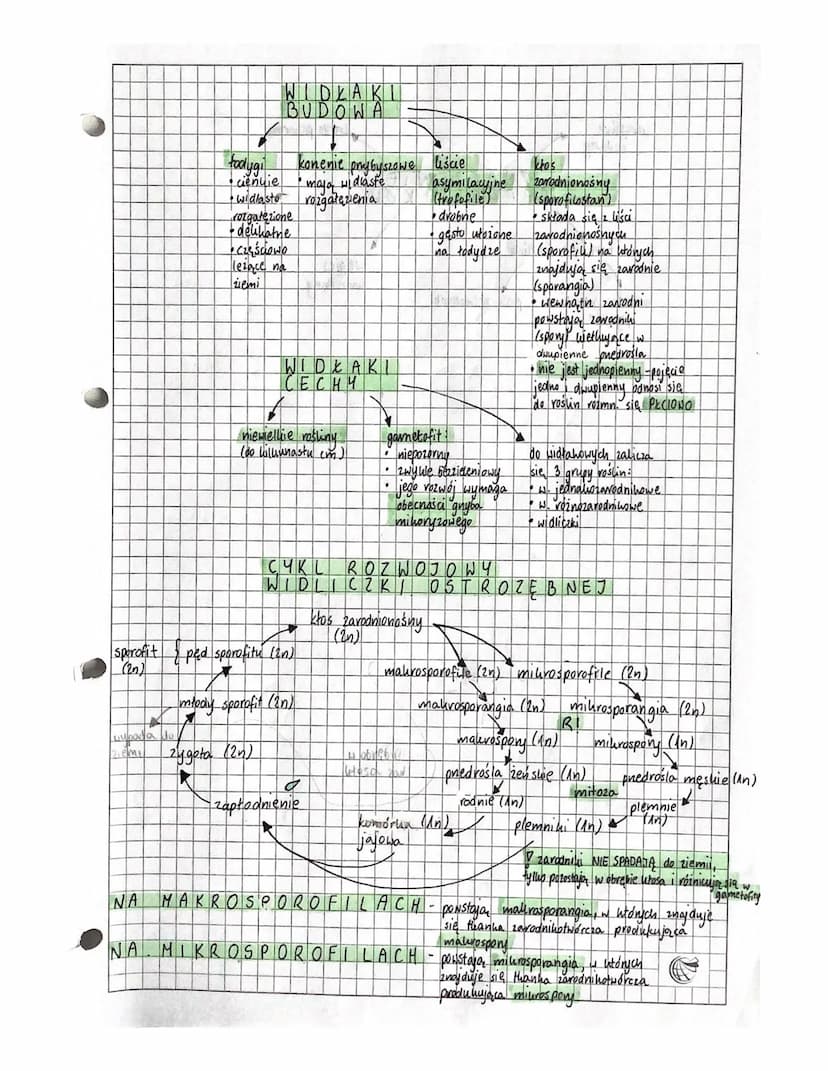 WIDŁAKI
BUDOWA
łodygi
• cienkie
• widlasto
rozgałęzione
• delikatne
• częściowo
leżące na
ziemi
korzenie przybyszowe
• mają widlaste
rozgałęzienia
liście
asymilacyjne
(trofofile)
• drobne
• gęsto ułożone
na łodydze
kłos
zarodnionośny
(sporofilostan)
• składa się z liści
zarodnionośnych
(sporofili) na których
znajdują się zarodnie
(sporangia)
• wewnątrz zarodni
powstają zarodniki
(spory) kiełkujące w
dwupienne przedrośla
• nie jest jednopienny - pojęcie
jedno i dwupienny odnosi się
do roślin rozmn. się PŁCIOWO
WIDŁAKI
CECHY
niewielkie rośliny
(do kilkunastu cm)
gametofit:
• niepozorny
• zwykle bezzieleniowy
• jego rozwój wymaga
obecności grzyba
mikoryzowego
do widłakowych zalicza
się 3 grupy roślin:
• w. jednakozarodnikowe
• w. różnozarodnikowe
• widliczki
CYKL ROZWOJOWY
WIDLICZKI OSTROZĘBNEJ
kłos zarodnionośny
(2n)
sporofit { pęd sporofitu (2n)
(2n)
makrosporofile (2n) mikrosporofile (2n)
młody sporofit (2n)
makrosporangia (2n) mikrosporangia (2n)
R!
wypada do
ziemi
makrospory (1n) mikrospory (1n)
zygota (2n)
w obrębie
kłosa zar.
przedrośla żeńskie (1n) przedrośla męskie (1n)
mitoza
zapłodnienie
rodnie (1n)
plemnie
(1n)
komórka (1n)
jajowa
plemniki (1n)
∇ zarodniki NIE SPADAJĄ do ziemii,
tylko pozostają w obrębie kłosa i różnicują się w
gametofity
NA MAKROSPOROFILACH - powstają makrosporangia, w których znajduje
się tkanka zarodnikotwórcza produkująca
makrospory
NA MIKROSPOROFILACH - powstają mikrosporangia, w których
znajduje się tkanka zarodnikotwórcza
produkująca mikrospory